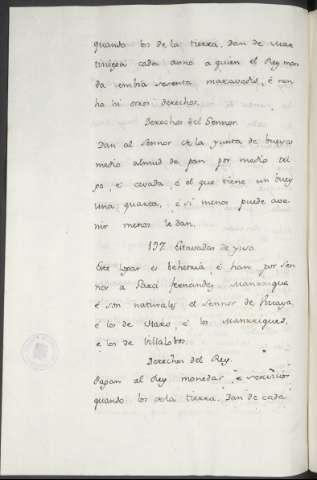 quando los de la tierra. Dan de mar
tiniega cada anno a quien el Rey man
da embia sesenta maravedis, é non
ha hi otros derechos.
Derechos del Sennor.
Dan al Sennor de la yunta de bueyes
medio almud de pan por medio tri
go, e cevada, é el que tiene un buey
una quarta, é si menos puede ave
nir menos le dan.
137 Estavados de yuso.
Este logar es behetria, é han por sen
nor a Garci Fernandez Manrrique
é son naturales el sennor de Vizcaya,
é los de Haro, é los Manrriques,
é los de Villalobos.
Derechos del Rey.
Pagan al Rey monedas, é servicios
quando los de la tierra. Dan de cada